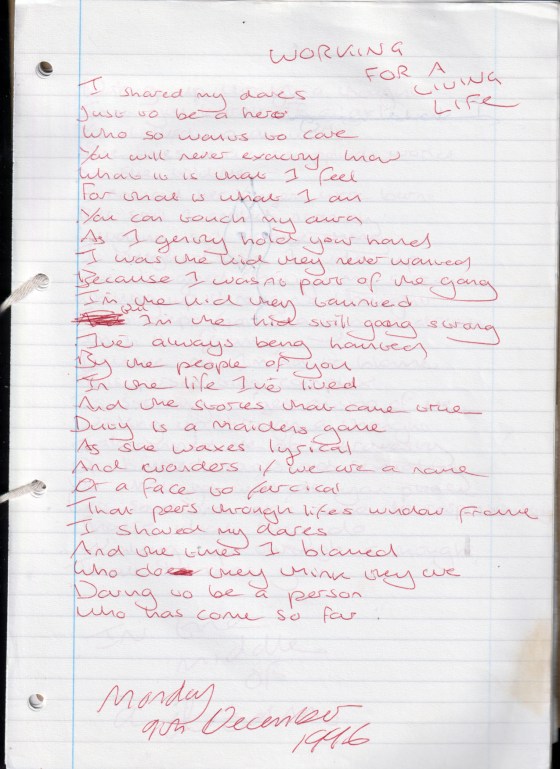 WORKING
FOR A
LIVING
LIFE
I shared my dares
Just to be a hero
Who so wants to care
You will never exactly know
What it is that I feel
For that is what I am
You can touch my aura
As I gently hold your hand
I was the kid they never wanted
Because I wasn't part of the gang
I'm the kid they taunted
but I'm the kid still going strong
I've always being haunted
By the people of you
In the life I've lived
And the stories that came true
Duty is a maidens game
As she waxes lyrical
And wonders if we are a name
Or a face so farcical
That peers through lifes window frame
I shared my dares
And the times I blamed
Who do they think they are
Daring to be a person
Who has come so far.
Monday
9th December
1996